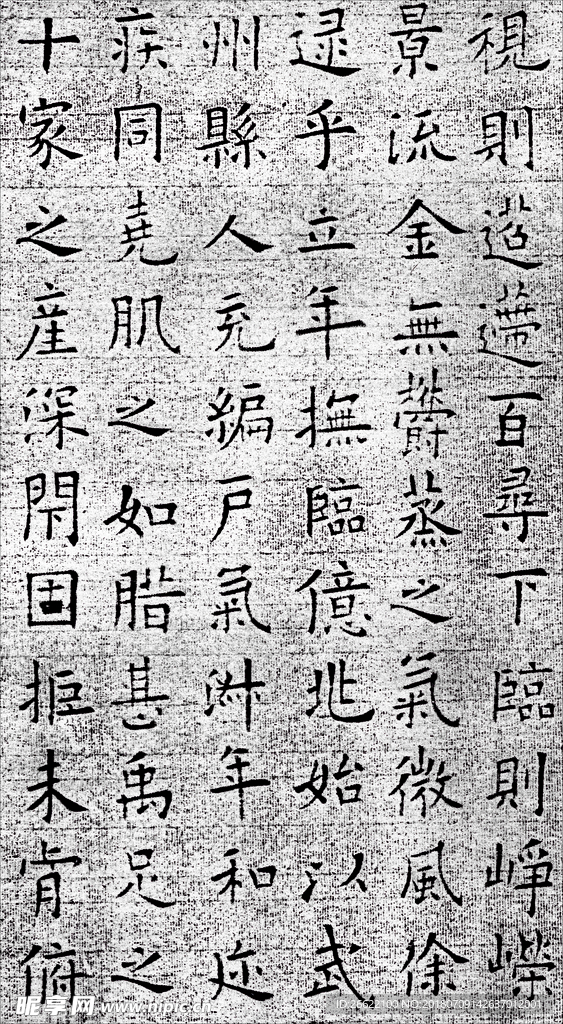 視則迢遰百尋下臨則崢嶸
景流金無欝蒸之氣微風徐
逯乎立年撫臨億兆始以武
州縣人充編戶氣淑年和迩
疾同堯肌之如腊甚禹足之
十家之産深閇固拒未肯俯
昵享网 www.nipic.cn
ID:26622103 NO:20180709142637912001